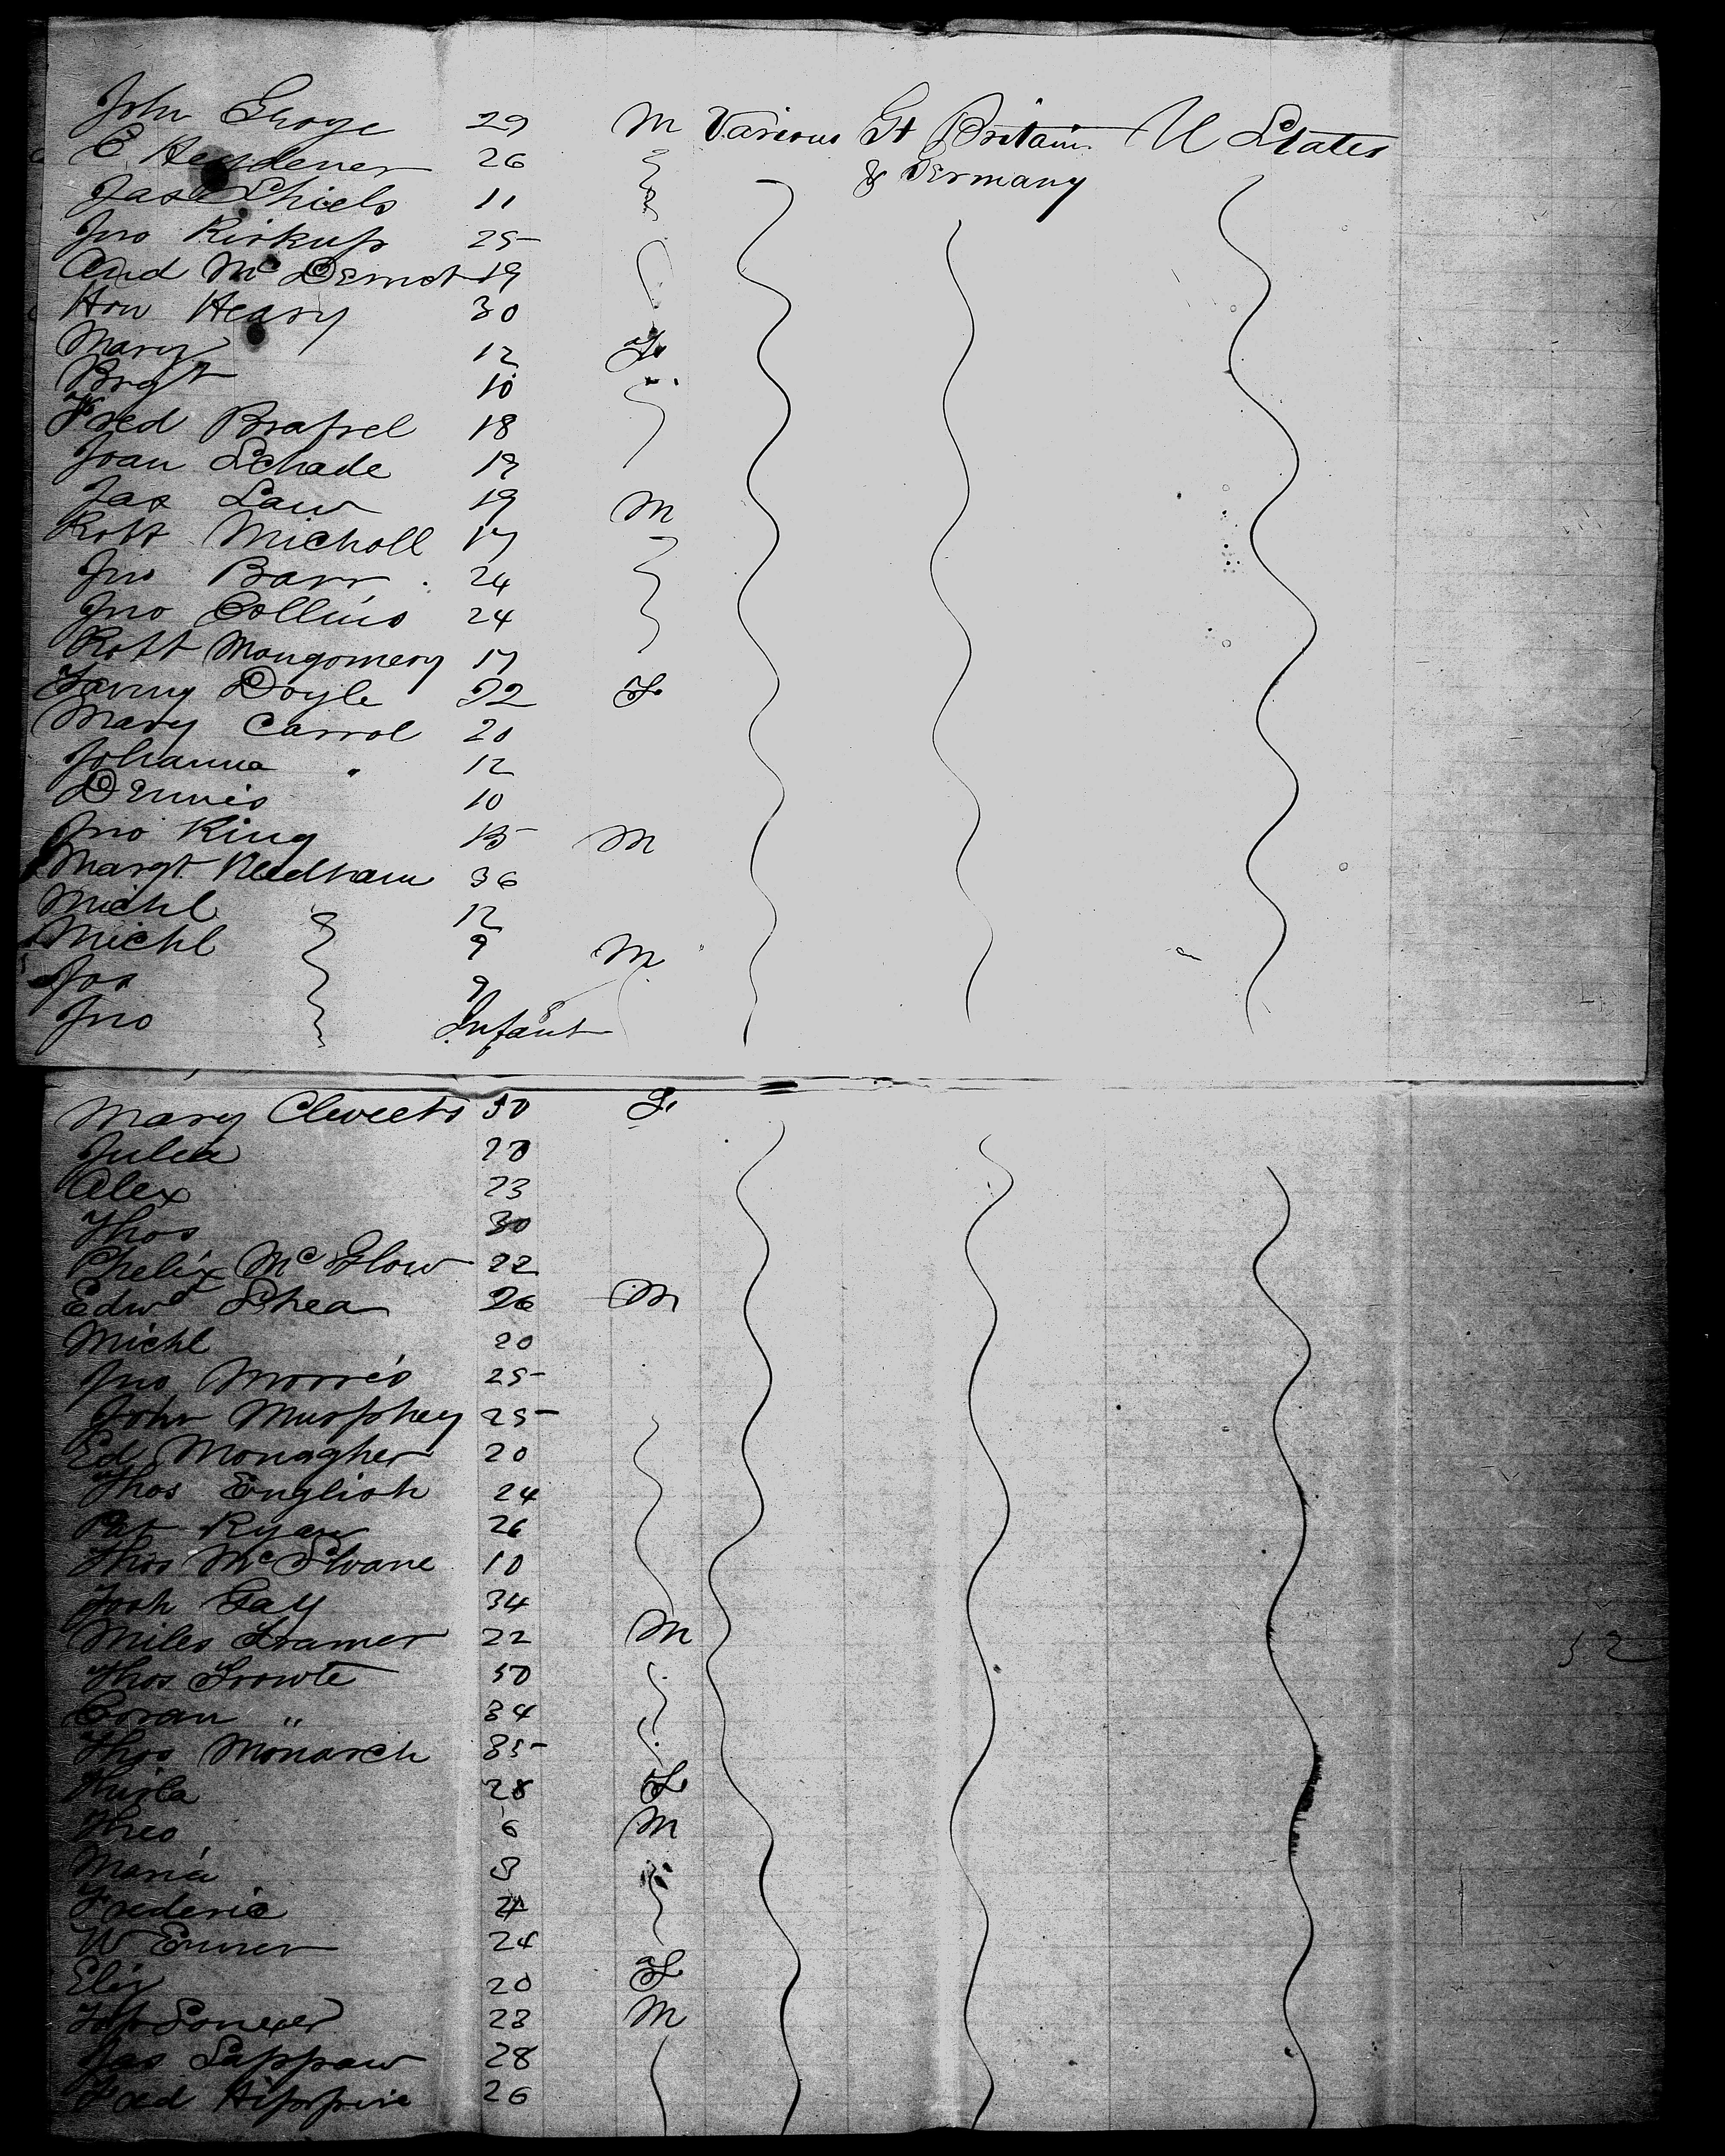 John Groye 29 M Various Gt Britain U States
E Heudener 26 & Germany
Jas Shiels 11
Jno Kirkup 25
And McDermot 19
Hon Heary 30
Mary 12 F
Brgt 10
Fred Brafrel 18
Joan Schade 19
Jas Law 19 M
Robt Micholl 17
Jno Barr 24
Jno Collins 24
Robt Mongomery 17
Doyle 22 F
Mary Carrol 20
Johanna " 12
Dennis 10
Jno King 15 M
Margt Needham 36
Michl 12
Michl 9 M
Jos 9
Jno Infant
Mary Cleveets 50 F
Julia 20
Alex 23
Thos 30
Phelix Mc Glow 22
Edwd Shea 26 M
Michl 20
Jno Morris 25
John Murphey 25
Ed Monagher 20
Thos English 24
Pat Ryan 26
Thos McSloane 10
Josh Gay 34
Miles Kramer 22 M
Thos Frowte 50
" 34
Thos Monarch 35
28 F
6 M
Maria 8
Frederic 4
W Enner 24
Eliz 20 F
23 M
Jas Sappaw 28
Fred 26
52